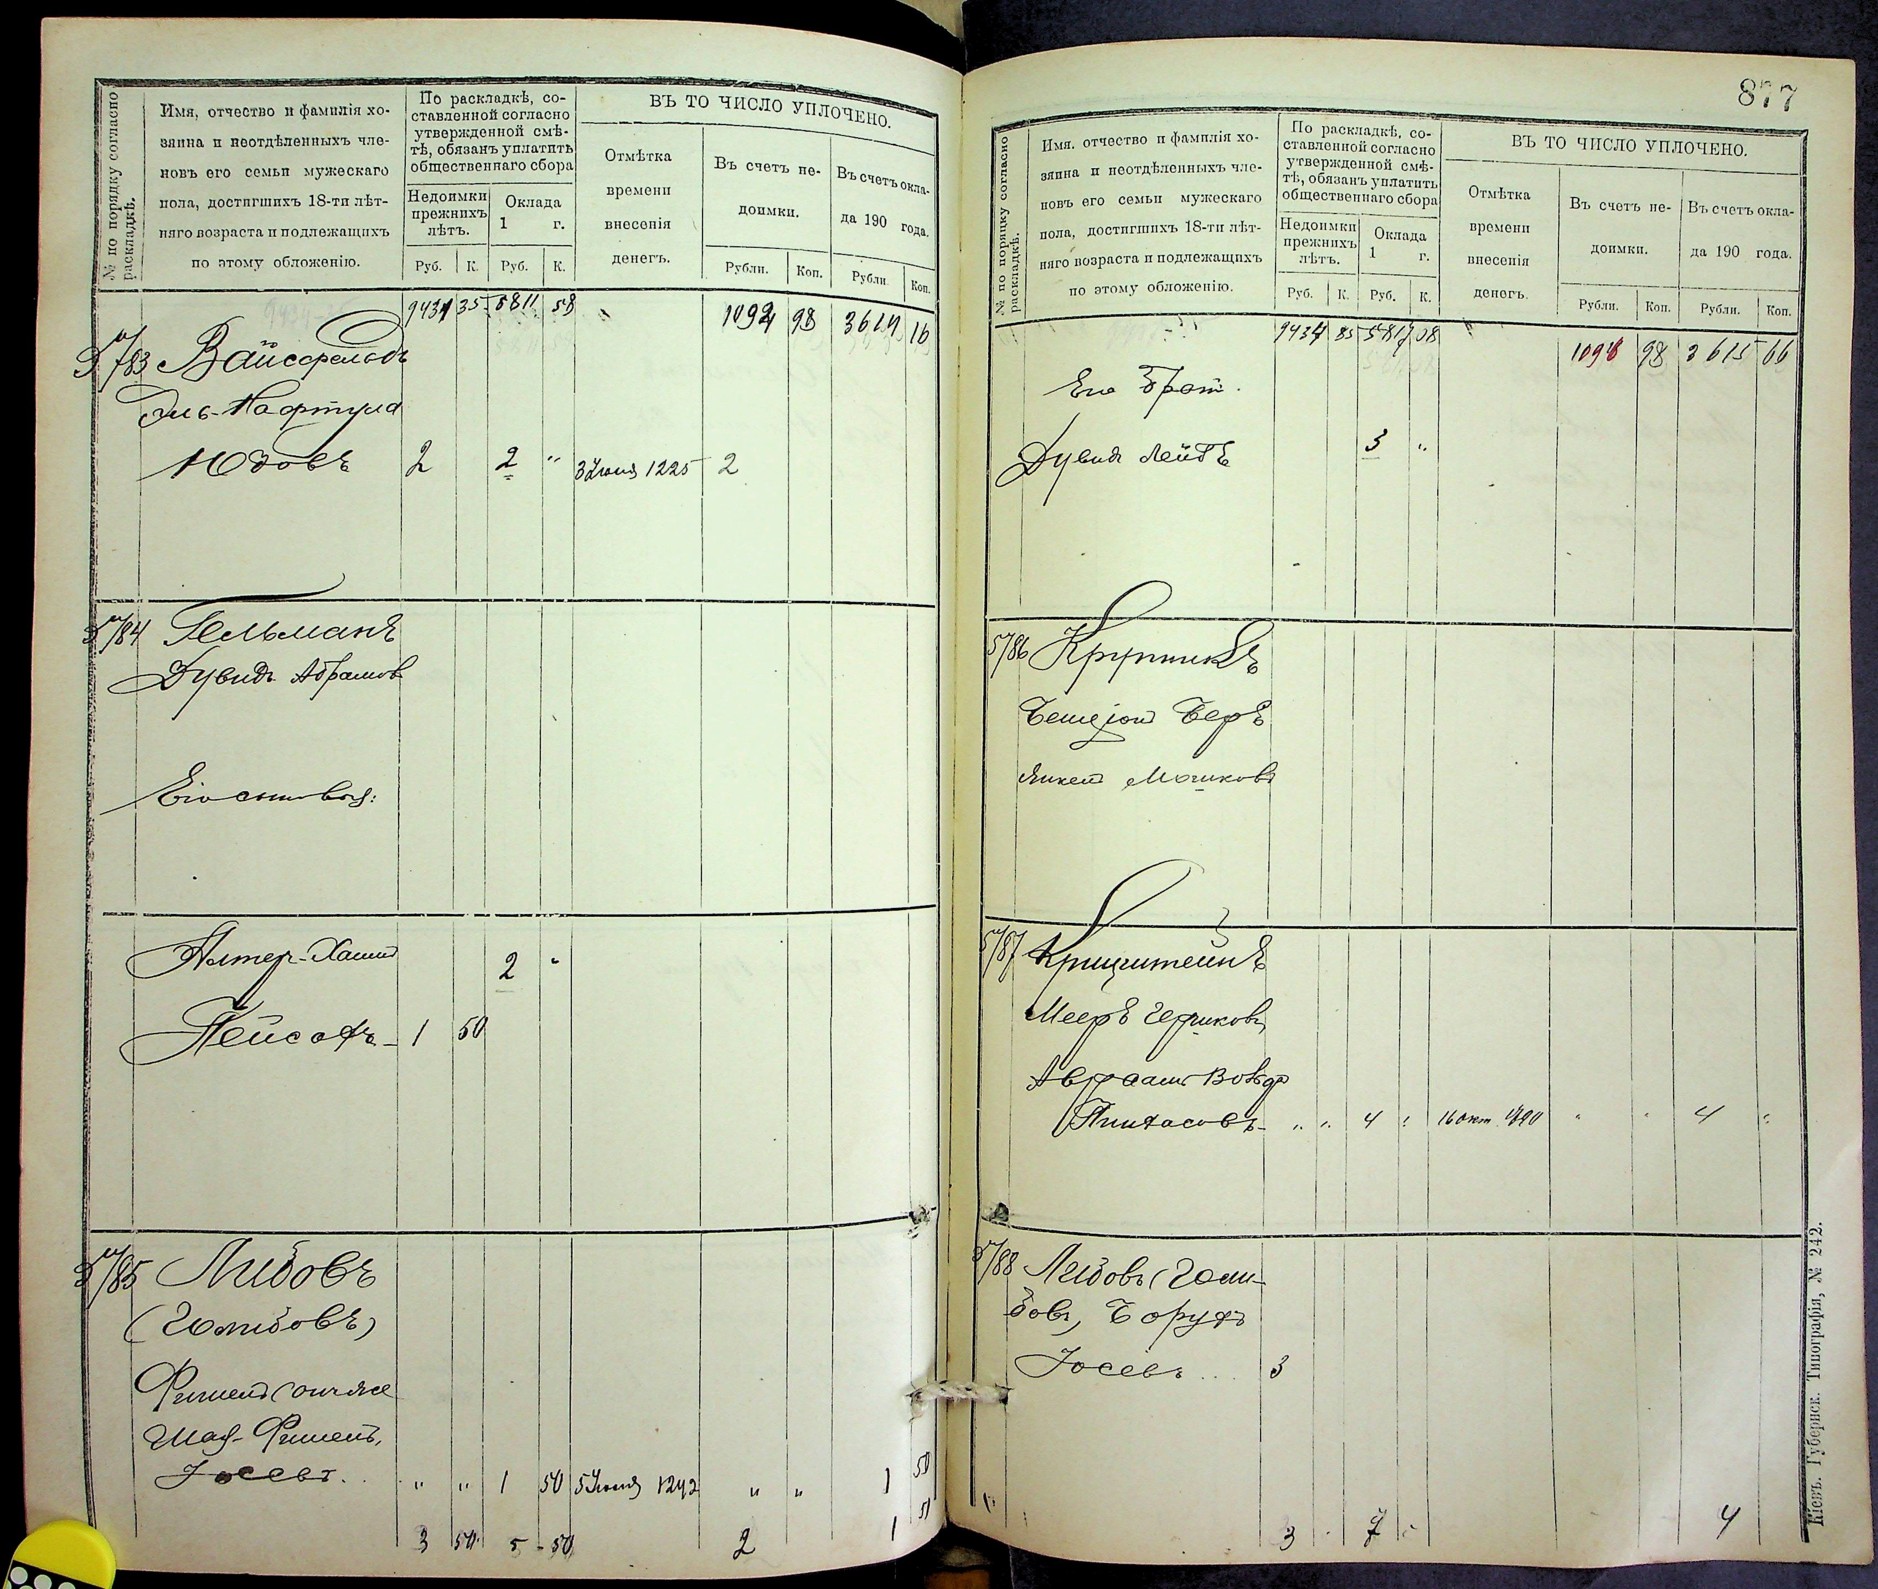 № по порядку согласно раскладкѣ.
Имя, отчество и фамилія хо-
зяина и неотдѣленныхъ чле-
новъ его семьи мужескаго
пола, достигшихъ 18-ти лѣт-
няго возраста и подлежащихъ
по этому обложенію.
По раскладкѣ, со-
ставленной согласно
утвержденной смѣ-
тѣ, обязанъ уплатить
общественнаго сбора
Недоимки
прежнихъ
лѣтъ.
Оклада
1 г.
Руб. К. Руб. К.
ВЪ ТО ЧИСЛО УПЛОЧЕНО.
Отмѣтка
времени
внесенія
денегъ.
Въ счетъ не-
доимки.
Въ счетъ окла-
да 190 года.
Рубли. Коп. Рубли Коп.
9431 35 5811 58 1092 98 16
5783 Вайсфельдъ
Эль-Нафтула
Юдовъ 2 2 " 3 Іюня 1225 2
5784 Гельманъ
Дувидъ Абрамов
Его сыновья:
Алтер-Хаим 2 "
Пейсахъ 1 50
5785 Либовъ
(Голибовъ)
Фишель (онъ же
Шая-Фишель,
Іосевъ. " " 1 50 5 Іюня 1242 " " 1 50
3 50 5 - 50 2 1 50
877
№ по порядку согласно раскладкѣ.
Имя. отчество и фамилія хо-
зяина и неотдѣленныхъ чле-
новъ его семьи мужескаго
пола, достигшихъ 18-ти лѣт-
няго возраста и подлежащихъ
по этому обложенію.
По раскладкѣ, со-
ставленной согласно
утвержденной смѣ-
тѣ, обязанъ уплатить
общественнаго сбора
Недоимки
прежнихъ
лѣтъ.
Оклада
1 г.
Руб. К. Руб. К.
ВЪ ТО ЧИСЛО УПЛОЧЕНО.
Отмѣтка
времени
внесенія
денегъ.
Въ счетъ не-
доимки.
Въ счетъ окла-
да 190 года.
Рубли. Коп. Рубли. Коп.
9434 85 5817 08 98 3615 66
Его брат.
Дувидъ Лейбъ 3 "
5786 Крупникъ
Беръ
Мошковъ
5787 Крицштейнъ
Мееръ Гершковъ,
Авраамъ Вольф
Пинхасовъ " " 4 " 16 окт " " 4 "
5788 Либовъ (Голи-
бовъ, Борухъ
Іосевъ ... 3
3 7 4
Кіевъ. Губернск. Типографія, № 242.